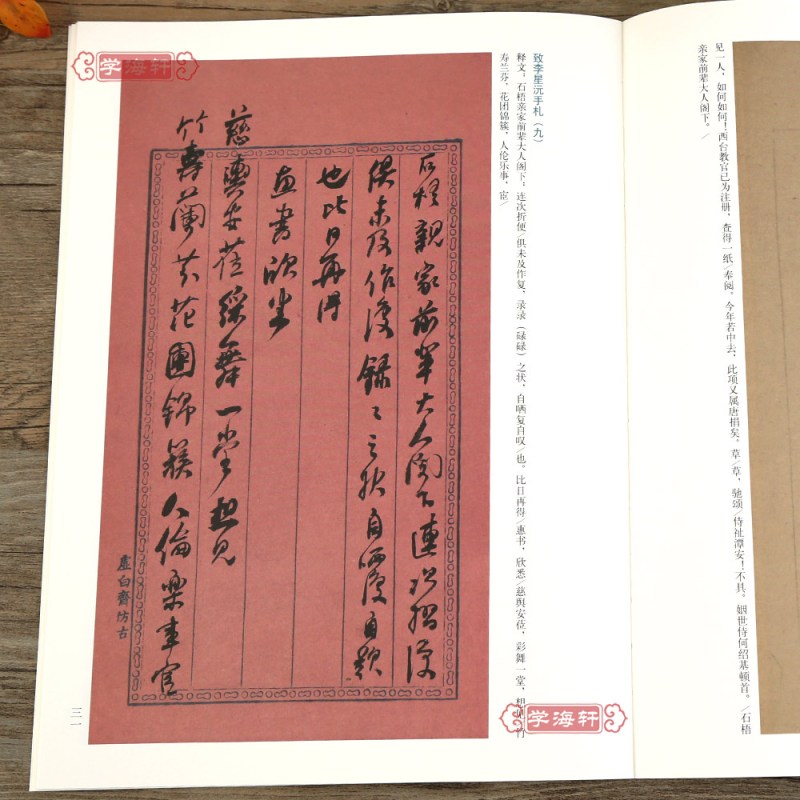 见一人，如何如何！西台教官已为注册，查得一纸/奉阅。今年若中去，此项又属唐捐矣。草/草，驰颂/侍祉潭安！不具。姻世侍何绍基顿首。/石梧
亲家前辈大人阁下。/
致李星沅手札（九）
释文：石梧亲家前辈大人阁下：连次折便/俱未及作复，录录（碌碌）之状，自哂复自叹/也。比日再得/惠书，欣悉/慈舆安莅，彩舞一堂，想见/竹
寿兰芬，花团锦簇，人伦乐事，宦/
石梧親家前輩大人閣下連次摺便
俱未及作復録〻之狀自哂復自歎
也比日再得
惠書欣悉
慈輿安莅綵舞一堂想見
竹壽蘭芬花團錦簇人倫樂事宦
虚白齋仿古
三一
学海轩
学海轩